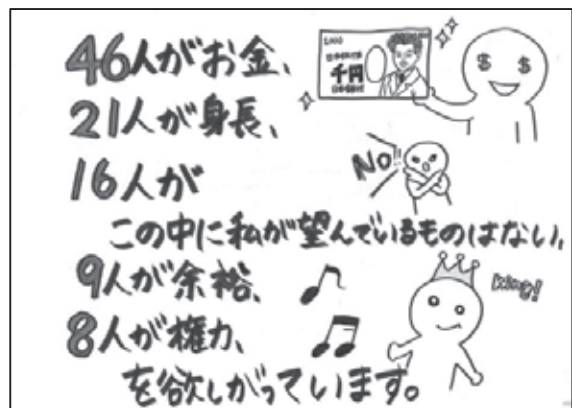 46人がお金、
21人が身長、
16人が
この中に私が望んでいるものはない、
9人が余裕、
8人が権力、
を欲しがっています。
千円
NO!!
King!